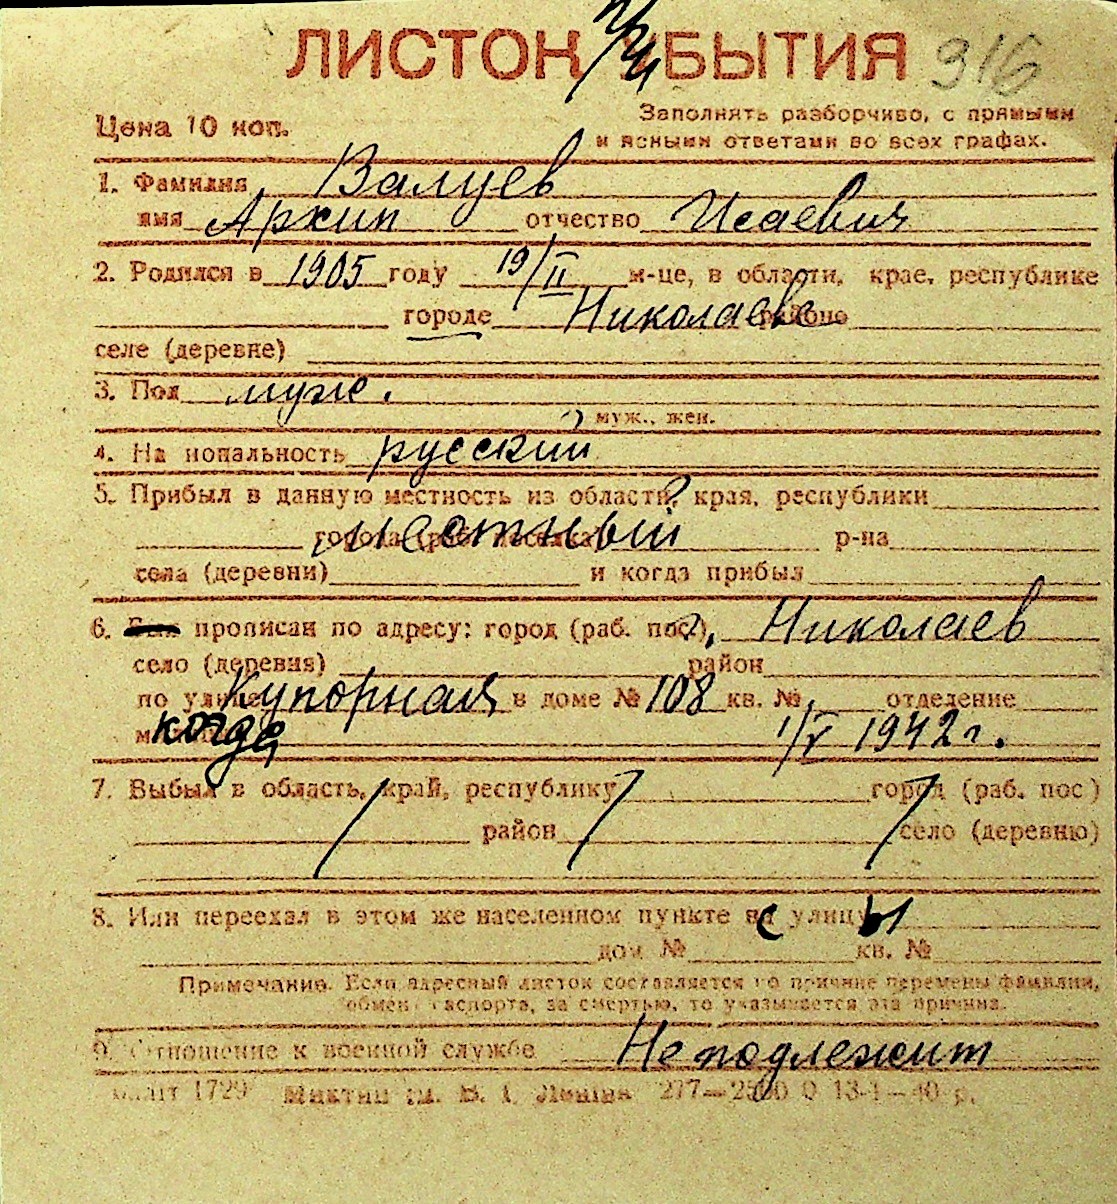 ЛИСТОК УБЫТИЯ 916
Цена 10 коп.
Заполнять разборчиво, с прямыми
и ясными ответами во всех графах.
1. Фамилия Валуев
имя Архип отчество Исаевич
2. Родился в 1905 году 19/II м-це, в области, крае, республике
городе Николаеве районе
селе (деревне)
3. Пол муж.
муж., жен.
4. Национальность русский
5. Прибыл в данную местность из области, края, республики
города (раб. поселка) местный р-на
села (деревни) и когда прибыл
6. Был прописан по адресу: город (раб. пос.) Николаев
село (деревня) район
по улице Купорная в доме № 108 кв. № отделение
когда 1/V 1942 г.
7. Выбыл в область, край, республику город (раб. пос)
район село (деревню)
8. Или переехал в этом же населенном пункте с улицы
дом № кв. №
Примечание. Если адресный листок составляется по причине перемены фамилии,
обмена паспорта, за смертью, то указывается эта причина.
9. Отношение к военной службе Не подлежит
1729 277—2500 0 13-1—40 р.